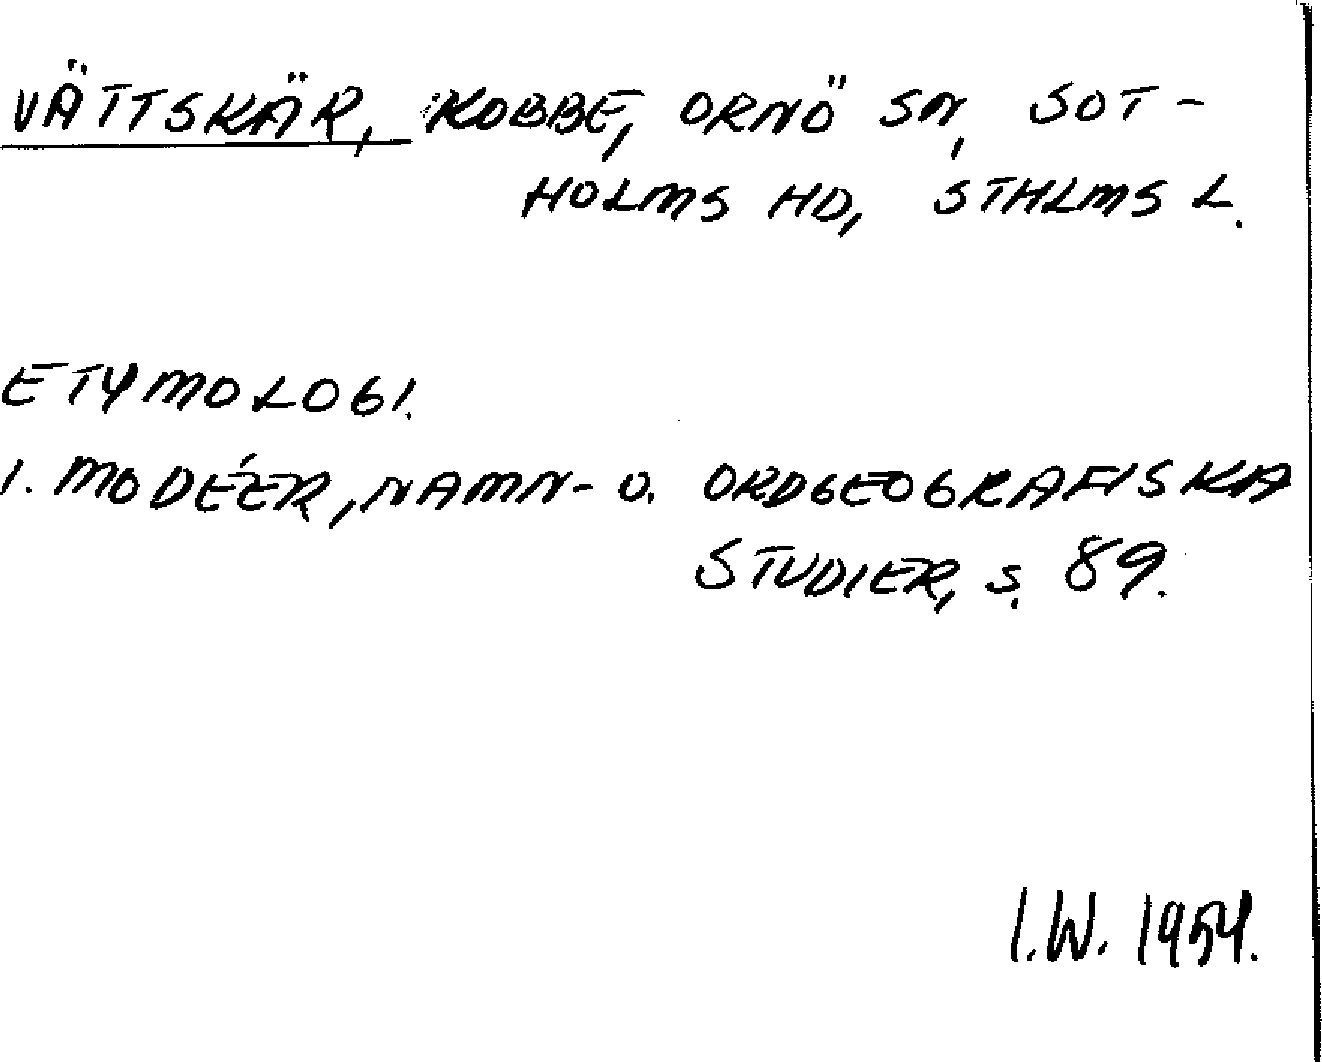 VÄTTSKÄR, KOBBE, ORNÖ SN, SOT-
HOLMS HD, STHLMS L.
ETYMOLOGI.
I. MODÉER, NAMN- O. ORDGEOGRAFISKA
STUDIER, S. 89.
I.W. 1954.